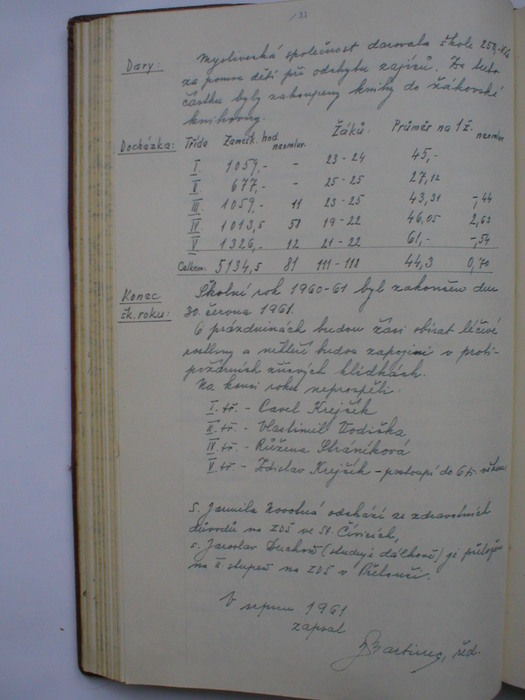 Dary: Myslivecká společnost darovala škole 250,- Kčs
za pomoc dětí při odchytu zajíců. Za tuto
částku byly zakoupeny knihy do žákovské
knihovny.
Docházka: Třída Zamešk. hod. neomluv. Žáků: Průměr na 1 ž. neomluv.
I. 1059,- - 23-24 45,-
II. 677,- - 25-25 27,12
III. 1059,- 11 23-25 43,31 -,44
IV. 1013,5 58 19-22 46,05 2,63
V 1326,- 12 21-22 61,- -,54
Celkem: 5134,5 81 111-118 44,3 0,70
Konec šk. roku: Školní rok 1960-61 byl zakončen dne
30. června 1961.
O prázdninách budou žáci sbírat léčivé
rostliny a někteří budou zapojeni v proti-
požárních žňových hlídkách.
Na konci roku neprospěli:
I. tř. - Pavel Krejčík
II. tř. - Vlastimil Vodička
IV. tř. - Růžena Stráníková
V. tř. - Zdislav Krejčík - postoupí do 6. tř.
s. Jarmila Novotná odchází ze zdravotních
důvodů na ZDŠ ve St. Čivicích,
s. Jaroslav (studuje dálkově) je přeložen
na 2. stupeň na ZDŠ v Přelouči.
V srpnu 1961
zapsal
Bartinec, řed.